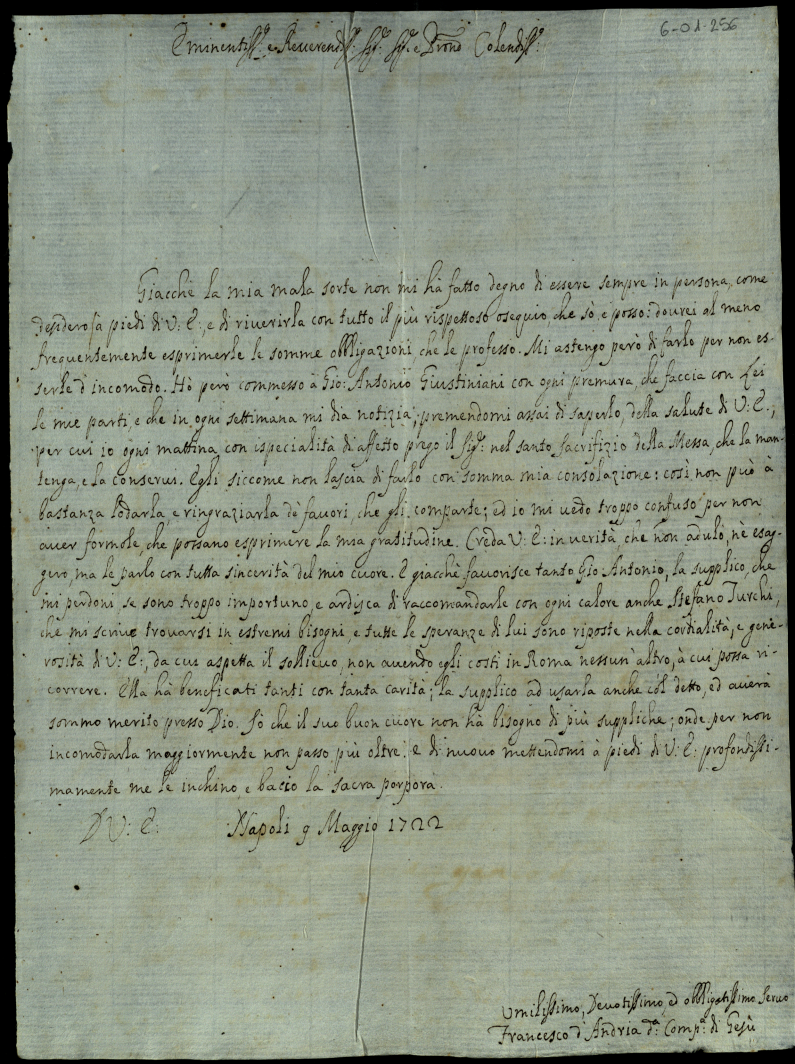 6-01-256
Eminentiss.º e Reverendiss.º Sig.r Sig.r e Prone Colendiss.º
Giacchè la mia mala sorte non mi hà fatto degno di essere sempre in persona, come
desidero, a piedi di V: E:, e di riverirla con tutto il più rispettoso osequio, che sò, e posso: dourei al meno
frequentemente esprimerle le somme obbligazioni, che le professo. Mi astengo però di farlo per non es-
serle d'incomodo. Hò però commesso à Gio: Antonio Giustiniani con ogni premura, che faccia con Lei
le mie parti, e che in ogni settimana mi dia notizia, premendomi assai di saperlo, della salute di V: E:,
per cui io ogni mattina con ispecialità di affetto prego il Sig.r nel santo sacrifizio della Messa, che la man-
tenga, e la conserui. Egli siccome non lascia di farlo con somma mia consolazione: così non può à
bastanza lodarla, e ringraziarla dè fauori, che gli comparte; ed io mi uedo troppo confuso per non
auer formole, che possano esprimere la mia gratitudine. Creda V: E: in verità, che non adulo, nè esag-
gero, ma le parlo con tutta sincerità del mio cuore. E giacchè fauorisce tanto Gio: Antonio, la supplico, che
mi perdoni se sono troppo importuno, e ardisca di raccomandarle con ogni calore anche Stefano Turchi,
che mi scriue trouarsi in estremi bisogni, e tutte le speranze di lui sono riposte nella cordialità, e gene-
rosità di V: E:, da cui aspetta il sollieuo, non auendo egli costì in Roma nessun'altro, à cui possa ri-
correre. Ella hà beneficati tanti con tanta carità; la supplico ad usarla anche col detto, ed auerà
sommo merito presso Dio. Sò che il suo buon cuore non hà bisogno di più suppliche; onde per non
incomodarla maggiormente non passo più oltre: e di nuouo mettendomi à piedi di V: E: profondissi-
mamente me le inchino e bacio la sacra porpora.
D V: E: Napoli 9 Maggio 1722
Umilissimo, Devotissimo, ed obbligatissimo Seruo
Francesco d'Andria d.ª Comp.ª di Gesù